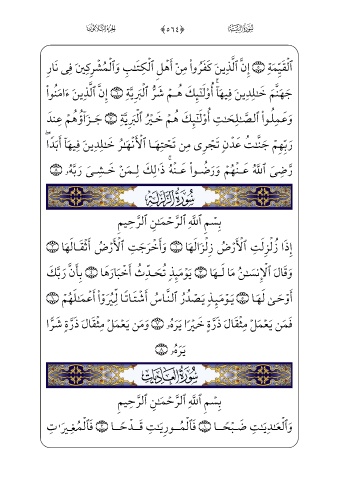 سُورَةُ البَيِّنَةِ ﴿٥٦٤﴾ الجزء الثلاثون
ٱلْقَيِّمَةِ ۝ إِنَّ ٱلَّذِينَ كَفَرُوا۟ مِنْ أَهْلِ ٱلْكِتَٰبِ وَٱلْمُشْرِكِينَ فِى نَارِ
جَهَنَّمَ خَٰلِدِينَ فِيهَآ أُو۟لَٰٓئِكَ هُمْ شَرُّ ٱلْبَرِيَّةِ ۝ إِنَّ ٱلَّذِينَ ءَامَنُوا۟
وَعَمِلُوا۟ ٱلصَّٰلِحَٰتِ أُو۟لَٰٓئِكَ هُمْ خَيْرُ ٱلْبَرِيَّةِ ۝ جَزَآؤُهُمْ عِندَ
رَبِّهِمْ جَنَّٰتُ عَدْنٍ تَجْرِى مِن تَحْتِهَا ٱلْأَنْهَٰرُ خَٰلِدِينَ فِيهَآ أَبَدًا ۖ
رَّضِىَ ٱللَّهُ عَنْهُمْ وَرَضُوا۟ عَنْهُ ۚ ذَٰلِكَ لِمَنْ خَشِىَ رَبَّهُۥ ۝
سُورَةُ الزَّلْزَلَةِ
بِسْمِ ٱللَّهِ ٱلرَّحْمَٰنِ ٱلرَّحِيمِ
إِذَا زُلْزِلَتِ ٱلْأَرْضُ زِلْزَالَهَا ۝ وَأَخْرَجَتِ ٱلْأَرْضُ أَثْقَالَهَا ۝
وَقَالَ ٱلْإِنسَٰنُ مَا لَهَا ۝ يَوْمَئِذٍ تُحَدِّثُ أَخْبَارَهَا ۝ بِأَنَّ رَبَّكَ
أَوْحَىٰ لَهَا ۝ يَوْمَئِذٍ يَصْدُرُ ٱلنَّاسُ أَشْتَاتًا لِّيُرَوْا۟ أَعْمَٰلَهُمْ ۝
فَمَن يَعْمَلْ مِثْقَالَ ذَرَّةٍ خَيْرًا يَرَهُۥ ۝ وَمَن يَعْمَلْ مِثْقَالَ ذَرَّةٍ شَرًّا
يَرَهُۥ ۝٨
سُورَةُ العَادِيَاتِ
بِسْمِ ٱللَّهِ ٱلرَّحْمَٰنِ ٱلرَّحِيمِ
وَٱلْعَٰدِيَٰتِ ضَبْحًا ۝ فَٱلْمُورِيَٰتِ قَدْحًا ۝ فَٱلْمُغِيرَٰتِ